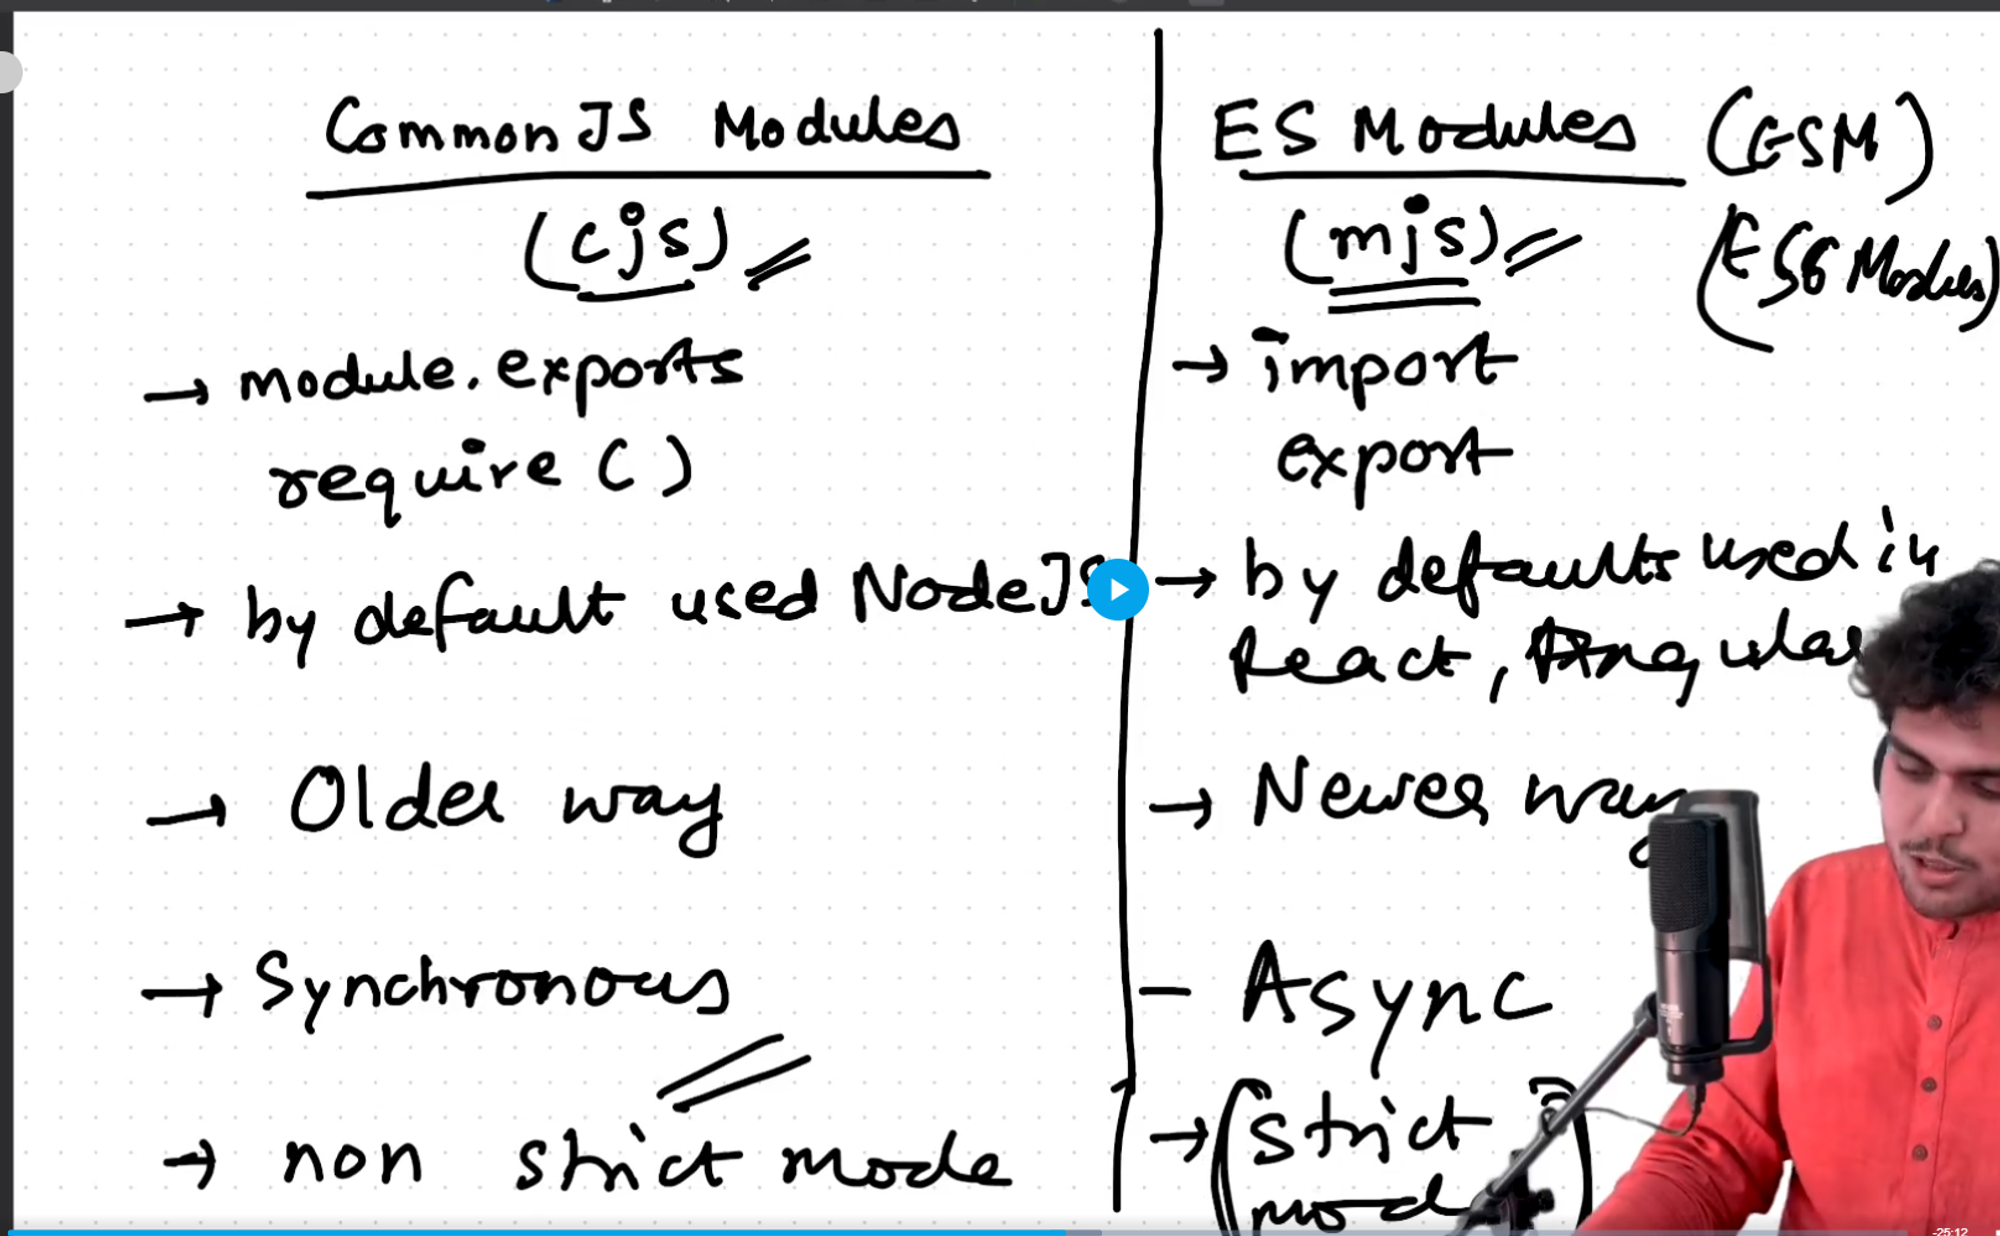 CommonJS Modules
(cjs)
→ module.exports
require ( )
→ by default used NodeJS
→ Older way
→ Synchronous
→ non strict mode
ES Modules (ESM)
(mjs)
(ES6 Modules)
→ import
export
→ by defaults used in
React, Angular
→ Newer way
- Async
→ (strict
mod
-25:12